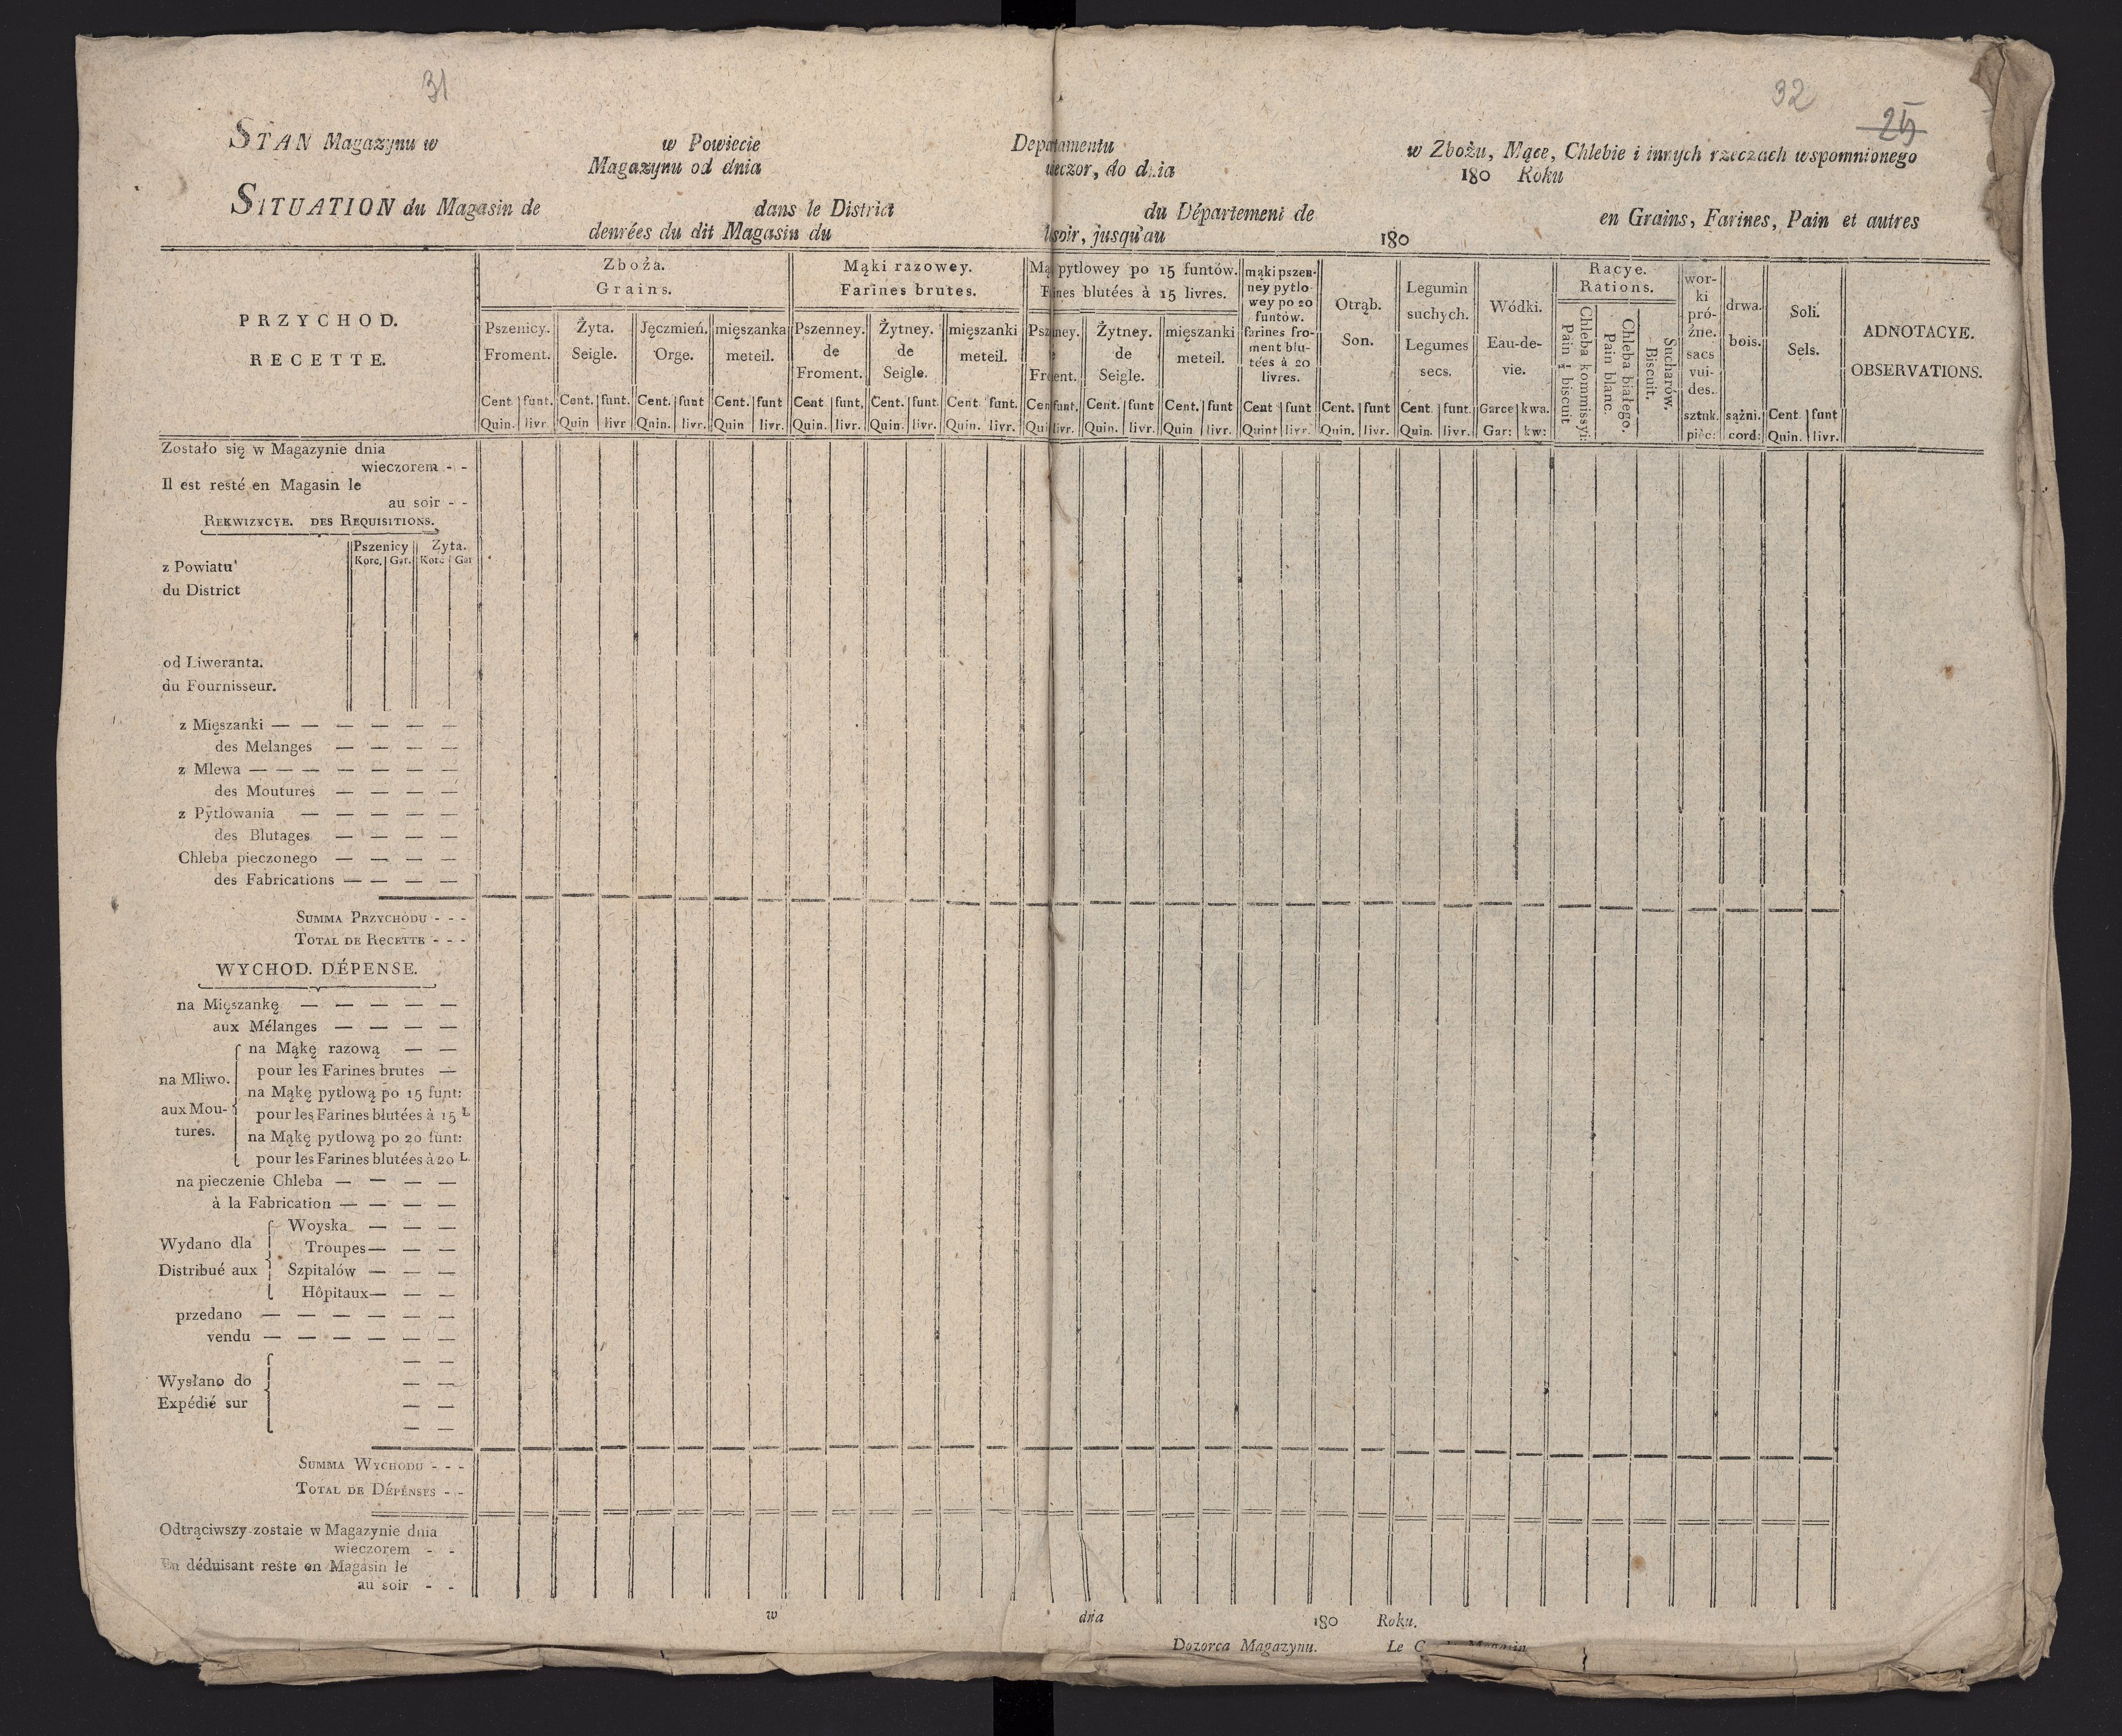 31
32
25
STAN Magazynu w w Powiecie Departamentu w Zbożu, Mące, Chlebie i innych rzeczach wspomnionego
Magazynu od dnia wieczor, do dnia 180 Roku
SITUATION du Magasin de dans le District du Département de en Grains, Farines, Pain et autres
denrées du dit Magasin du soir, jusqu'au 180
PRZYCHOD.
RECETTE.
Zboża.
Grains.
Pszenicy.
Froment.
Cent. funt.
Quin. livr
Żyta.
Seigle.
Cent. funt.
Quin livr
Jęczmień.
Orge.
Cent. funt
Quin. livr.
mięszanka
meteil.
Cent. funt
Quin livr.
Mąki razowey.
Farines brutes.
Pszenney.
de
Froment.
Cent funt.
Quin. livr.
Żytney.
de
Seigle.
Cent. funt
Quin. livr.
mięszanki
meteil.
Cent. funt.
Quin. livr.
Mą pytlowey po 15 funtów.
F ines blutées à 15 livres.
Psz ney.
Fr ent.
Cen funt.
Qui livr.
Żytney.
de
Seigle.
Cent. funt
Quin. livr.
mięszanki
meteil.
Cent. funt
Quin livr.
mąki pszen-
ney pytlo-
wey po 20
funtów.
farines fro-
ment blu-
tées à 20
livres.
Cent funt
Quint livr.
Otrąb.
Son.
Cent. funt
Quin. livr.
Legumin
suchych.
Legumes
secs.
Cent. funt.
Quin. livr.
Wódki.
Eau-de-
vie.
Garce kwa.
Gar: kw:
Racye.
Rations.
Chleba kommissyi:
Pain ¾ biscuit
Chleba białego.
Pain blanc.
Sucharów.
Biscuit.
wor-
ki
pró-
żne.
sacs
vui-
des.
sztuk.
pièc:
drwa.
bois.
sążni.
cord:
Soli.
Sels.
Cent. funt
Quin. livr.
ADNOTACYE.
OBSERVATIONS.
Zostało się w Magazynie dnia
wieczorem - -
Il est resté en Magasin le
au soir - -
REKWIZYCYE. DES REQUISITIONS.
Pszenicy Żyta.
Korc. Gar. Korc Gar
z Powiatu
du District
od Liweranta.
du Fournisseur.
z Mięszanki — — — — — —
des Melanges — — — —
z Mlewa — — — — — — —
des Moutures — — — —
z Pytlowania — — — — —
des Blutages — — — —
Chleba pieczonego — — — —
des Fabrications — — — —
SUMMA PRZYCHODU - - -
TOTAL DE RECETTE - - -
WYCHOD. DÉPENSE.
na Mięszankę — — — — —
aux Mélanges — — — —
na Mliwo.
aux Mou-
tures.
na Mąkę razową — —
pour les Farines brutes —
na Mąkę pytlową po 15 funt:
pour les Farines blutées à 15 L
na Mąkę pytlową po 20 funt:
pour les Farines blutées à 20 L
na pieczenie Chleba — — — —
à la Fabrication — — — —
Wydano dla
Distribué aux
Woyska — — —
Troupes — — —
Szpitalów — — —
Hôpitaux — — —
przedano — — — — — —
vendu — — — — — —
Wysłano do
Expédié sur
— —
— —
— —
— —
SUMMA WYCHODU - - -
TOTAL DE DÉPENSES - -
Odtrąciwszy zostaie w Magazynie dnia
wieczorem - -
En déduisant reste en Magasin le
au soir - -
w dnia 180 Roku.
Dozorca Magazynu. Le G Magasin